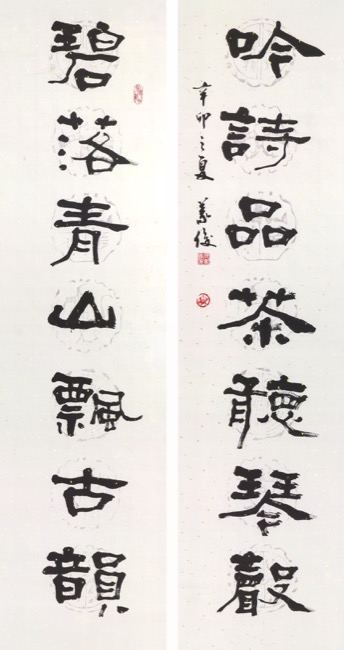 吟詩品茶聽琴聲
辛卯之夏 義俊
碧落青山飄古韻